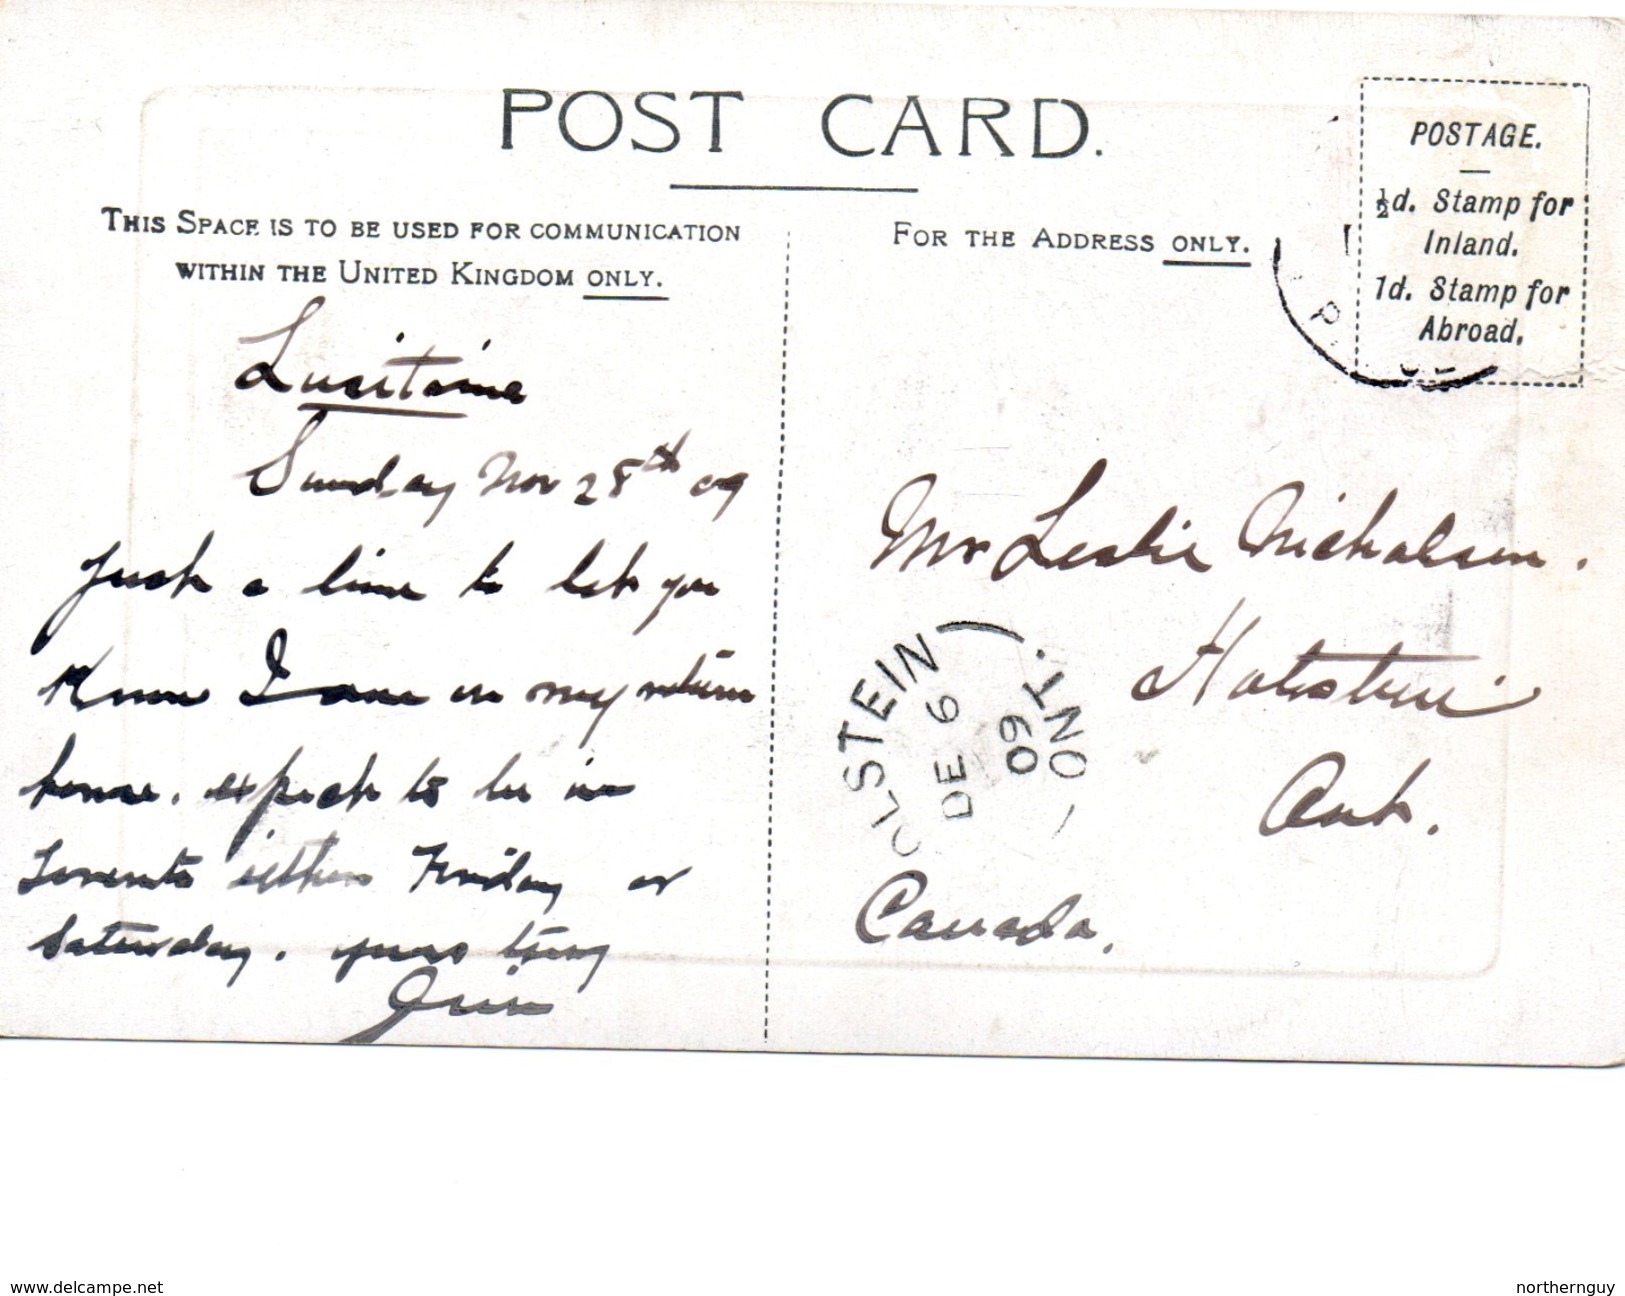 POST CARD.
THIS SPACE IS TO BE USED FOR COMMUNICATION
WITHIN THE UNITED KINGDOM ONLY.
Lusitania
Sunday Nov 28th 09
Just a line to let you
Know I am on my return
home. expect to be in
Toronto either Friday or
Saturday. yours truly
FOR THE ADDRESS ONLY.
POSTAGE.
½d. Stamp for
Inland.
1d. Stamp for
Abroad.
Mr Leslie Nicholson.
Holstein
Ont.
Canada.
OLSTEIN
DE 6
09
ONT.
www.delcampe.net
northernguy